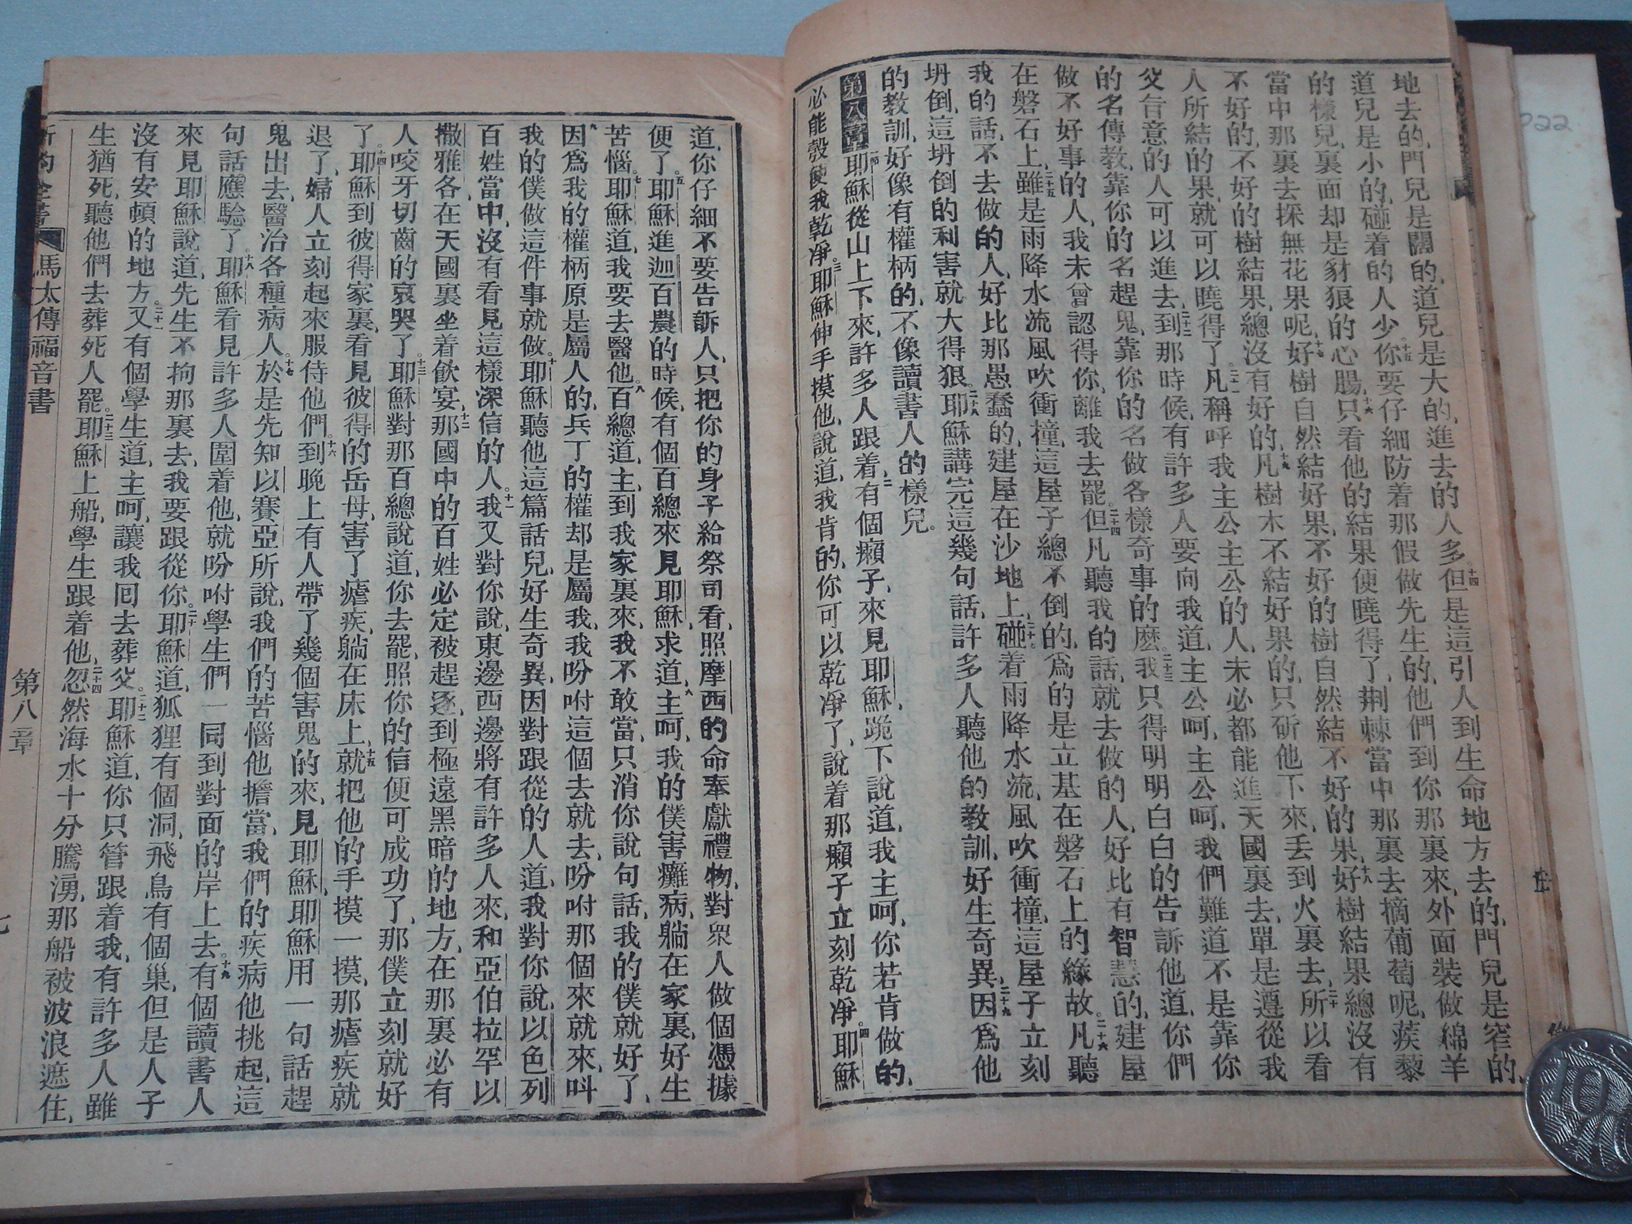 地去的、門兒是闊的、道兒是大的、進去的人多、十四但是這引人到生命地方去的、門兒是窄的、
道兒是小的、碰着的人少。十五你要仔細防着那假做先生的、他們到你那裏來、外面裝做綿羊
的樣兒、裏面却是豺狼的心腸、十六只看他的結果便曉得了、荆棘當中那裏去摘葡萄呢、蒺藜
當中那裏去採無花果呢、十七好樹自然結好果、不好的樹自然結不好的果、十八好樹結果總沒有
不好的、不好的樹結果、總沒有好的、十九凡樹木不結好果的、只斫他下來、丟到火裏去、二十所以看
人所結的果、就可以曉得了。二十一凡稱呼我主公主公的人、未必都能進天國裏去、單是遵從我
父旨意的人可以進去、二十二到那時候、有許多人要向我道、主公呵、主公呵、我們難道不是靠你
的名傳教、靠你的名趕鬼、靠你的名做各樣奇事的麽、二十三我只得明明白白的告訴他道、你們
做不好事的人、我未曾認得你、離我去罷。二十四但凡聽我的話、就去做的人、好比有智慧的、建屋
在磐石上、二十五雖是雨降水流風吹衝撞、這屋子總不倒的、爲的是立基在磐石上的緣故、二十六凡聽
我的話、不去做的人、好比那愚蠢的、建屋在沙地上、二十七碰着雨降水流、風吹衝撞、這屋子立刻
坍倒、這坍倒的利害就大得狠。二十八耶穌講完這幾句話、許多人聽他的教訓、好生奇異、二十九因爲他
的教訓、好像有權柄的、不像讀書人的樣兒。
第八章 一耶穌從山上下來、許多人跟着、二有個癩子、來見耶穌、跪下說道、我主呵、你若肯做的、
必能彀使我乾凈。三耶穌伸手摸他、說道、我肯的、你可以乾凈了、說着那癩子立刻乾凈。四耶穌
道、你仔細不要告訴人、只把你的身子給祭司看、照摩西的命奉獻禮物、對衆人做個憑據
便了。五耶穌進迦百農的時候、有個百總來見耶穌、求道、六主呵、我的僕害癱病、躺在家裏、好生
苦惱。七耶穌道、我要去醫他。八百總道、主到我家裏來、我不敢當、只消你說句話、我的僕就好了、
九因爲我的權柄原是屬人的、兵丁的權却是屬我、我吩咐這個去就去、吩咐那個來就來、叫
我的僕做這件事就做。十耶穌聽他這篇話兒、好生奇異、因對跟從的人道、我對你說、以色列
百姓當中、沒有看見這樣深信的人。十一我又對你說、東邊西邊將有許多人來、和亞伯拉罕以
撒雅各、在天國裏坐着飲宴、十二那國中的百姓必定被趕逐、到極遠黑暗的地方、在那裏必有
人咬牙切齒的哀哭了。十三耶穌對那百總說道、你去罷、照你的信便可成功了、那僕立刻就好
了。十四耶穌到彼得家裏、看見彼得的岳母、害了瘧疾、躺在床上、十五就把他的手摸一摸、那瘧疾就
退了、婦人立刻起來服侍他們。十六到晚上有人帶了幾個害鬼的來見耶穌、耶穌用一句話趕
鬼出去、醫治各種病人。十七於是先知以賽亞所說、我們的苦惱他擔當、我們的疾病他挑起、這
句話應騐了。十八耶穌看見許多人圍着他、就吩咐學生們一同到對面的岸上去。十九有個讀書人
來見耶穌說道、先生不拘那裏去、我要跟從你。二十耶穌道、狐狸有個洞、飛鳥有個巢、但是人子
沒有安頓的地方。二十一又有個學生道、主呵、讓我囘去葬父。二十二耶穌道、你只管跟着我、有許多人雖
生猶死、聽他們去葬死人罷。二十三耶穌上船、學生跟着他、二十四忽然海水十分騰湧、那船被波浪遮住、
新約全書 馬太傳福音書 第八章 七